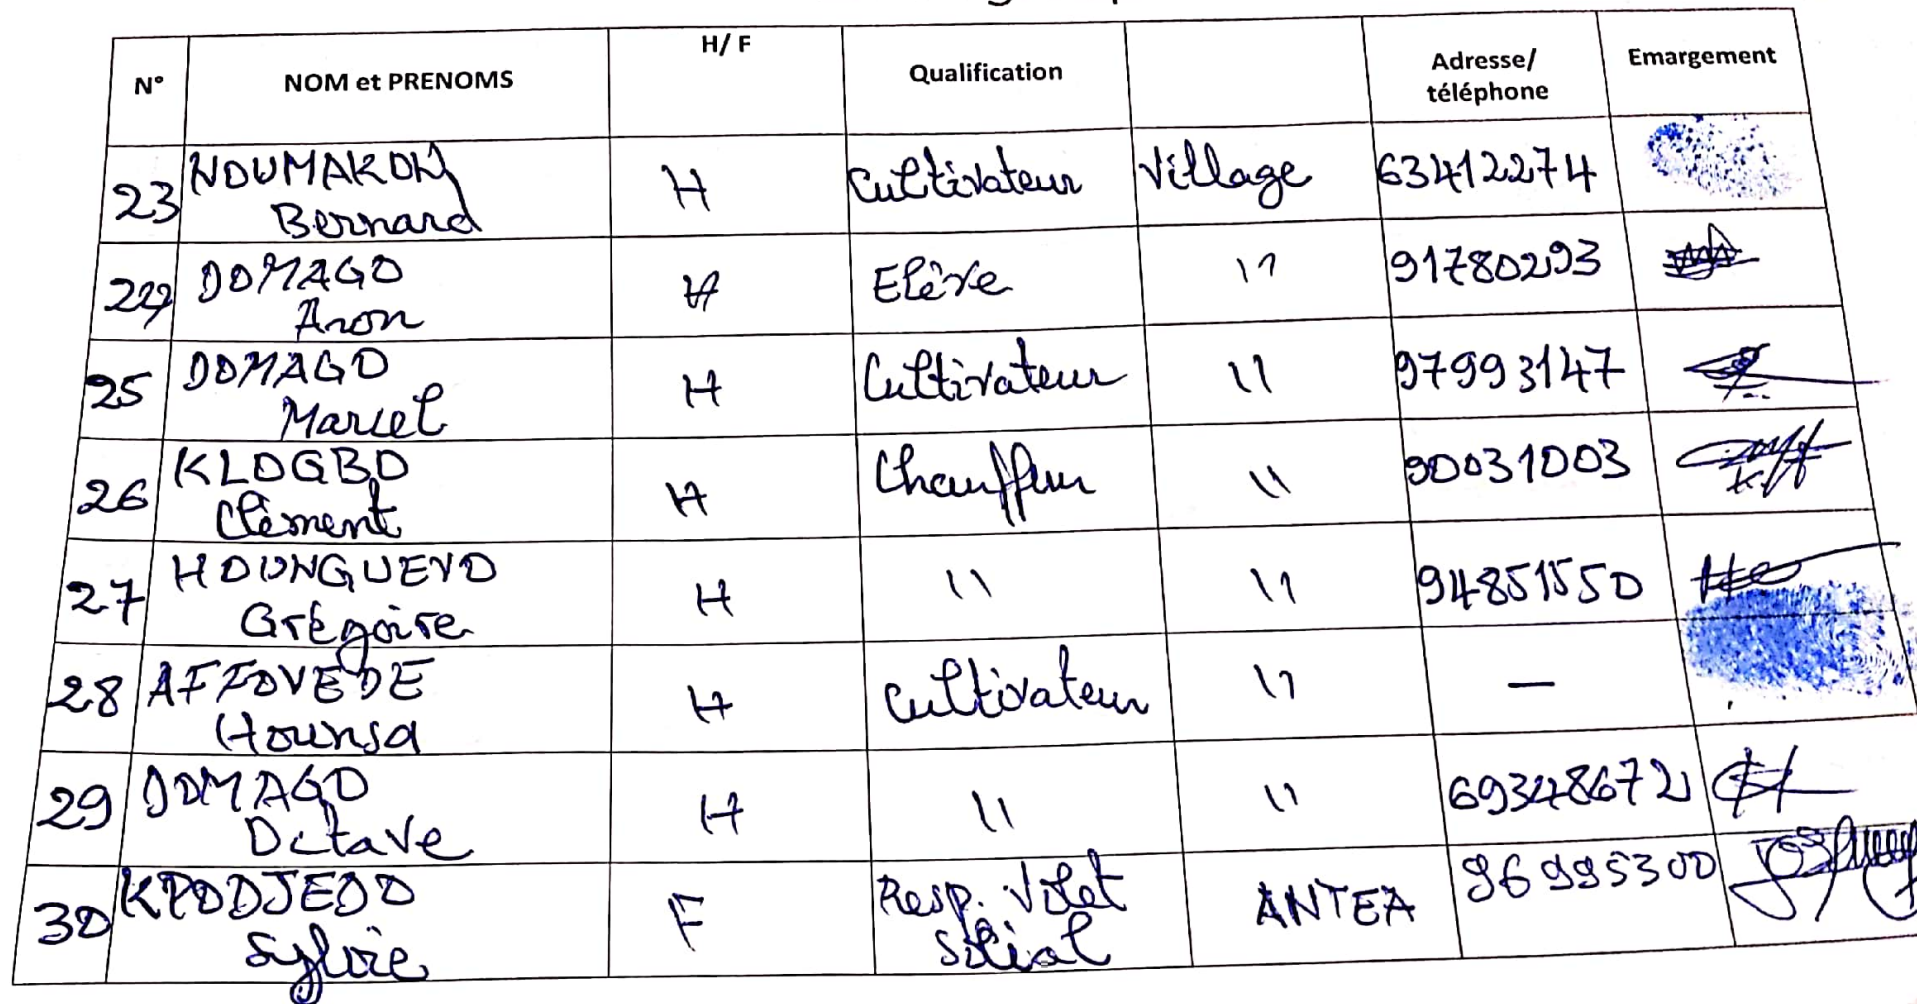 N° NOM et PRENOMS H/ F Qualification Adresse/ téléphone Emargement
23 NOUMAKON Bernard H Cultivateur Village 63412274
24 DOMAGO Aron H Elève '' 91780293
25 DOMAGO Marcel H Cultivateur '' 97993147
26 KLOGBO Clément H Chauffeur '' 90031003
27 HOUNGUEVO Grégoire H '' '' 94851550
28 AFFOVEDE Hounsa H Cultivateur '' —
29 DOMAGO Octave H '' '' 69348672
30 KPODJEDO Sylvie F Resp. Volet Social ANTEA 96995300